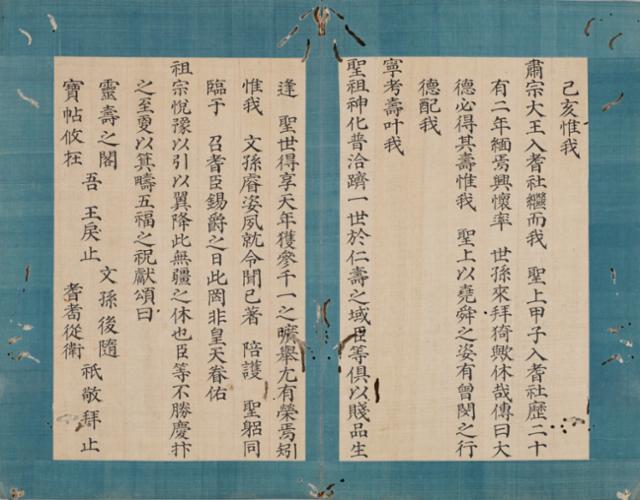 己亥惟我
肅宗大王入耆社繼而我 聖上甲子入耆社歷二十
有二年緬焉興懷率 世孫來拜猗歟休哉傳曰大
德必得其壽惟我 聖上以堯舜之姿有曾閔之行
德配我
寧考壽叶我
聖祖神化普洽躋一世於仁壽之域臣等俱以賤品生
逢 聖世得享天年獲參千一之曠舉尤有榮焉矧
惟我 文孫睿姿夙就令聞已著 陪護 聖躬同
臨于 召耆臣錫爵之日此罔非皇天眷佑
祖宗悅豫以引以翼降此無疆之休也臣等不勝慶抃
之至更以箕疇五福之祝獻頌曰
靈壽之閣 吾 王戾止 文孫後隨 祗敬拜止
寶帖攸在 耆耇從衛